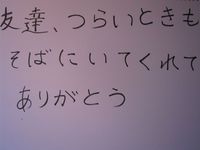 友達、つらいときも
そばにいてくれて
ありがとう